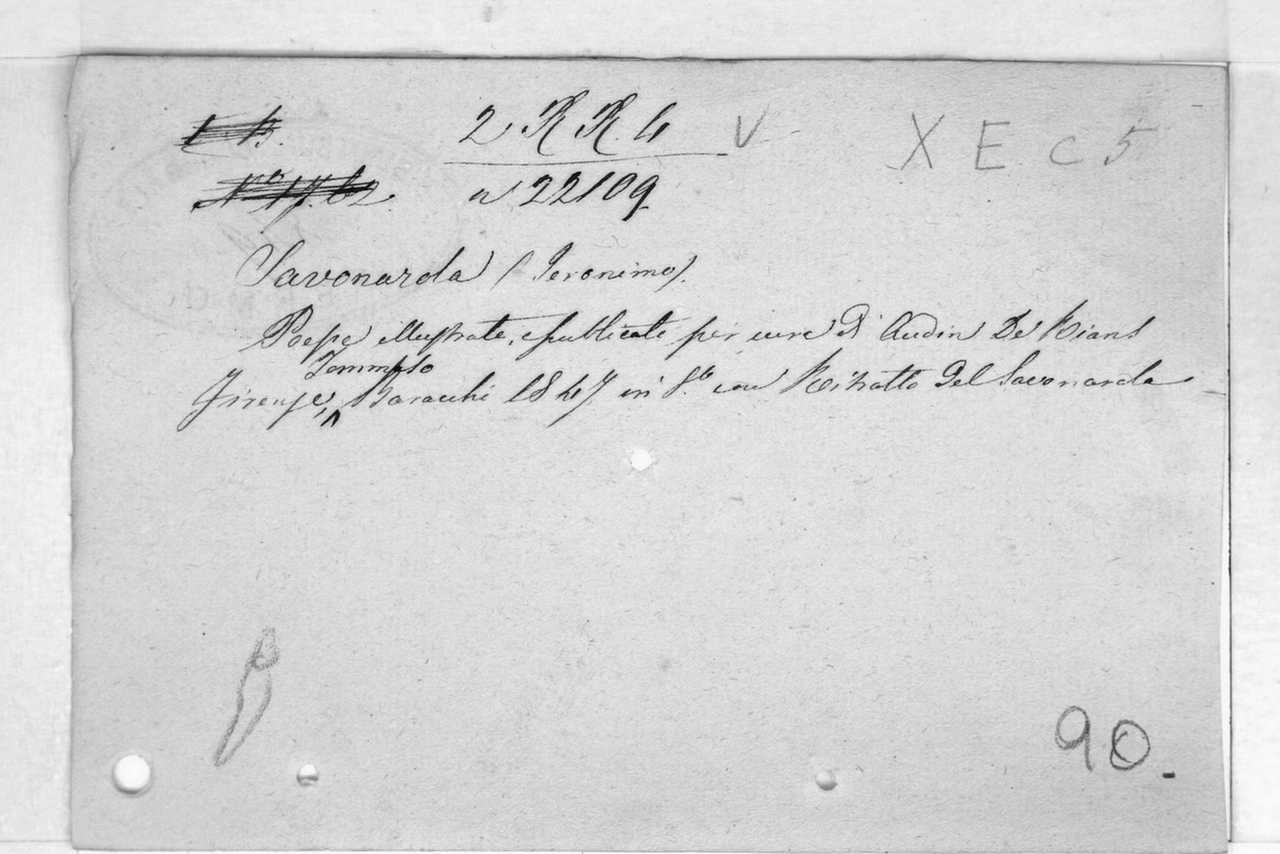 2 R R 4 V X E C 5
n 22109
Savonarola (Jeronimo).
Poesie illustrate, e pubblicate per cura di Audin De Rians
Tommaso
Firenze, Baracchi 1847 in 8.° con Ritratto del Savonarola
90.